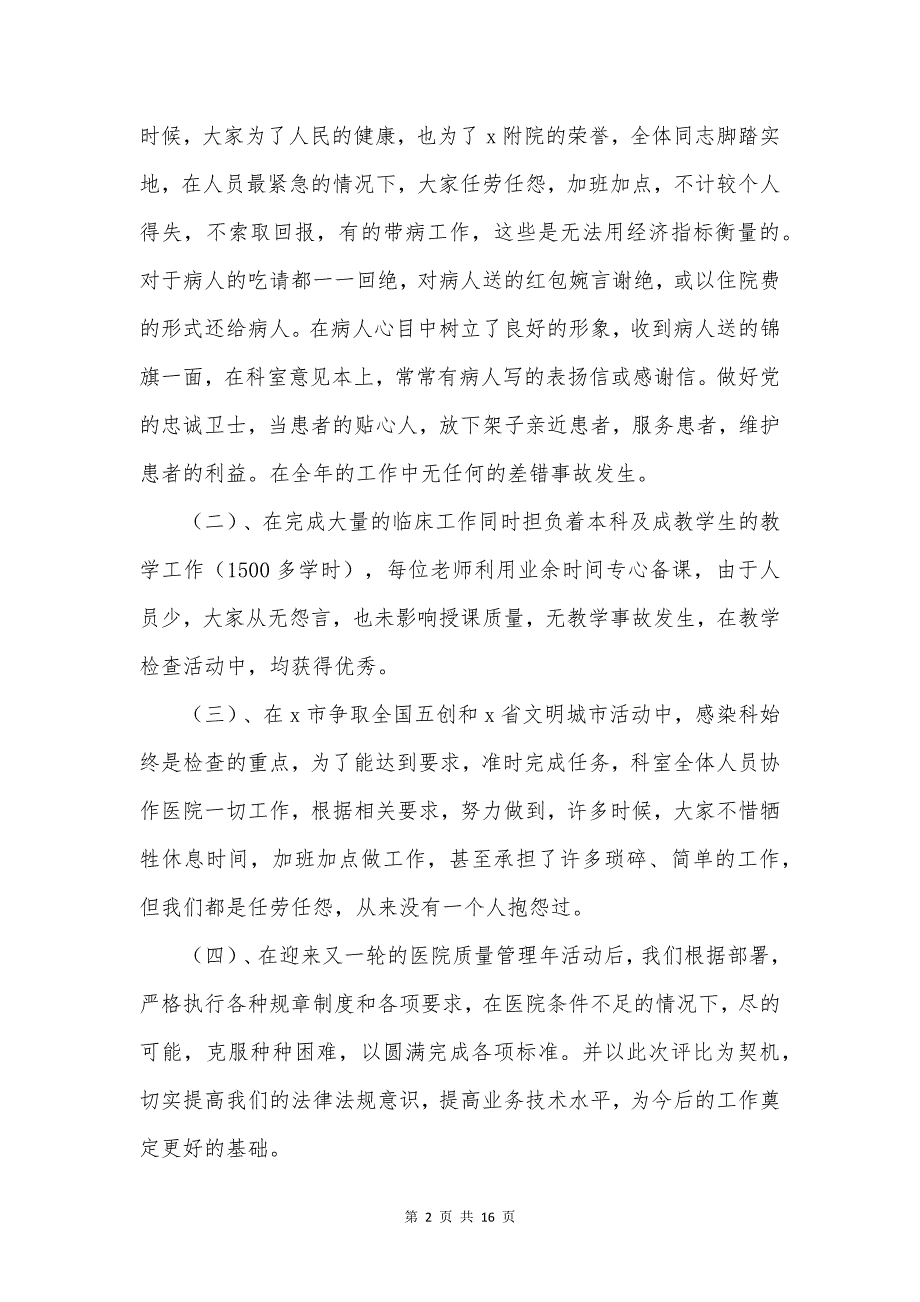 时候，大家为了人民的健康，也为了 x 附院的荣誉，全体同志脚踏实
地，在人员最紧急的情况下，大家任劳任怨，加班加点，不计较个人
得失，不索取回报，有的带病工作，这些是无法用经济指标衡量的。
对于病人的吃请都一一回绝，对病人送的红包婉言谢绝，或以住院费
的形式还给病人。在病人心目中树立了良好的形象，收到病人送的锦
旗一面，在科室意见本上，常常有病人写的表扬信或感谢信。做好党
的忠诚卫士，当患者的贴心人，放下架子亲近患者，服务患者，维护
患者的利益。在全年的工作中无任何的差错事故发生。
（二）、在完成大量的临床工作同时担负着本科及成教学生的教
学工作（1500 多学时），每位老师利用业余时间专心备课，由于人
员少，大家从无怨言，也未影响授课质量，无教学事故发生，在教学
检查活动中，均获得优秀。
（三）、在 x 市争取全国五创和 x 省文明城市活动中，感染科始
终是检查的重点，为了能达到要求，准时完成任务，科室全体人员协
作医院一切工作，根据相关要求，努力做到，许多时候，大家不惜牺
牲休息时间，加班加点做工作，甚至承担了许多琐碎、简单的工作，
但我们都是任劳任怨，从来没有一个人抱怨过。
（四）、在迎来又一轮的医院质量管理年活动后，我们根据部署，
严格执行各种规章制度和各项要求，在医院条件不足的情况下，尽的
可能，克服种种困难，以圆满完成各项标准。并以此次评比为契机，
切实提高我们的法律法规意识，提高业务技术水平，为今后的工作奠
定更好的基础。
第 2 页 共 16 页